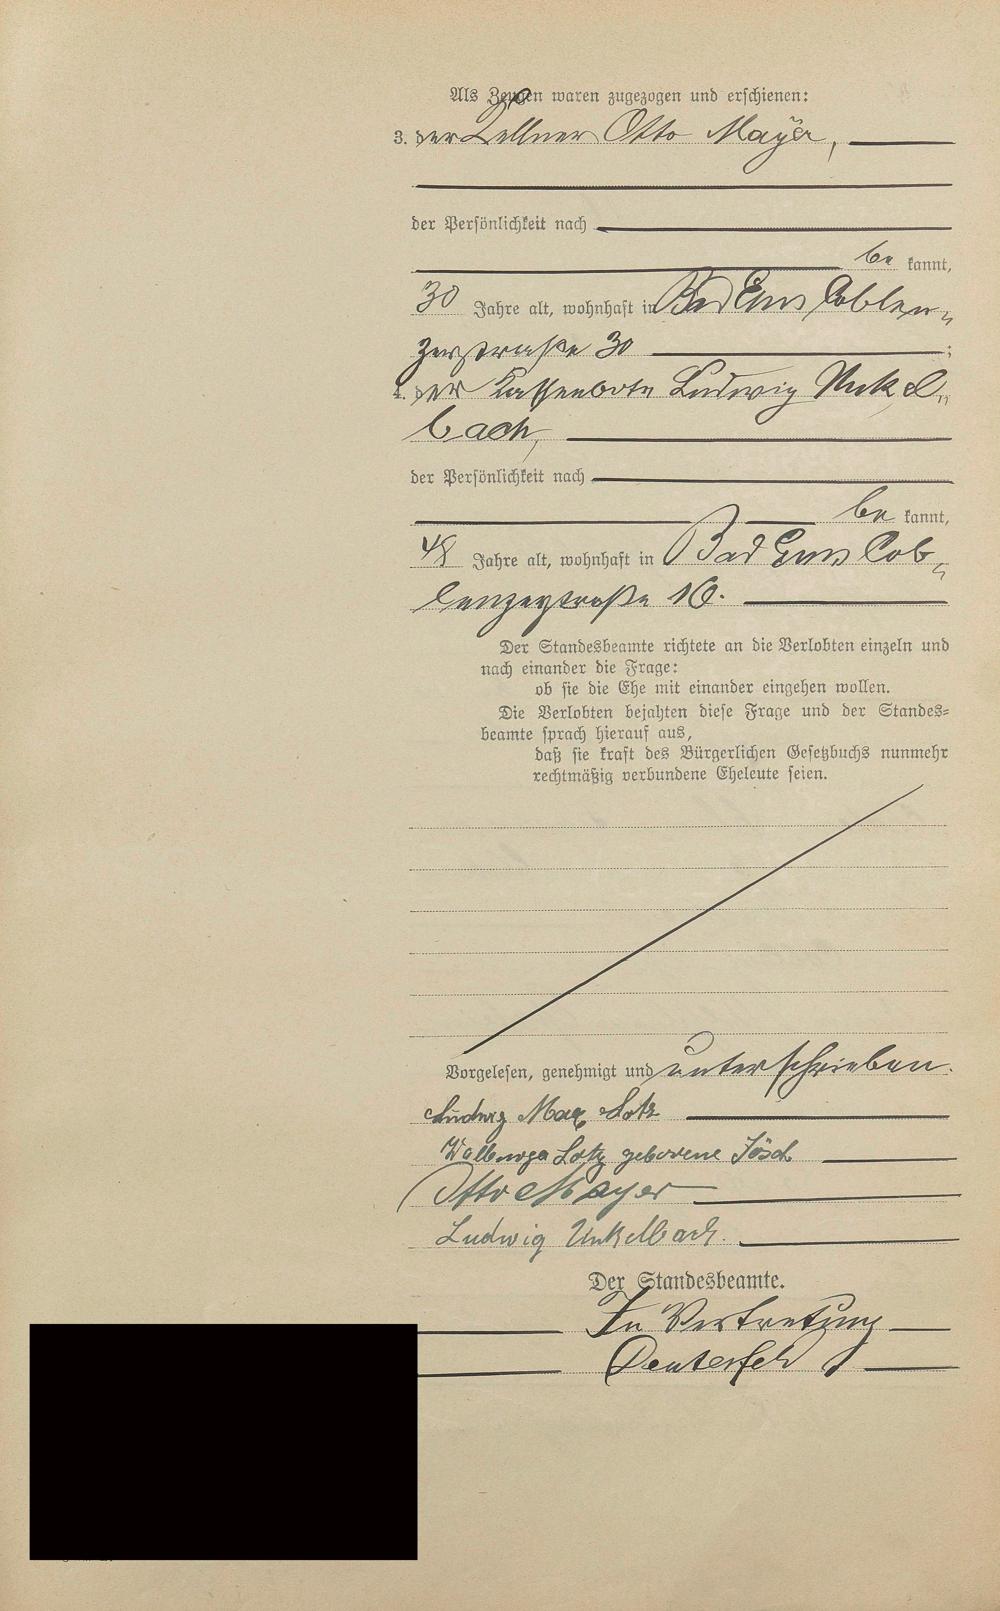 Als Zeugen waren zugezogen und erschienen:
3. der Kellner Otto Mayer,
der Persönlichkeit nach
be kannt,
30 Jahre alt, wohnhaft in Bad Ems Coblen-
zerstraße 30 ;
4. der Kassenbote Ludwig Unkel-
bach,
der Persönlichkeit nach
be kannt,
48 Jahre alt, wohnhaft in Bad Ems Cob-
lenzerstraße 16.
Der Standesbeamte richtete an die Verlobten einzeln und
nach einander die Frage:
ob sie die Ehe mit einander eingehen wollen.
Die Verlobten bejahten diese Frage und der Standes-
beamte sprach hierauf aus,
daß sie kraft des Bürgerlichen Gesetzbuchs nunmehr
rechtmäßig verbundene Eheleute seien.
Vorgelesen, genehmigt und unterschrieben.
Ludwig Max Lotz
Walburga Lotz geborene Jösch
Otto Mayer
Ludwig Unkelbach.
Der Standesbeamte.
In Vertretung